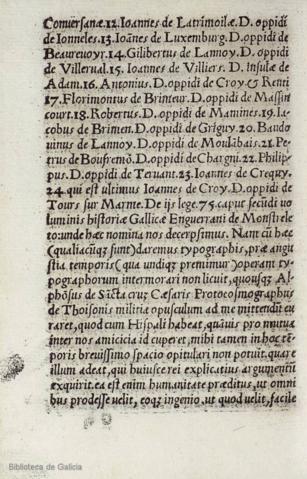 Comuersanæ.12.Ioannes de Latrimoilæ.D.oppidi
de Ionneles.13.Ioānes de Luxemburg.D.oppidi de
Beaureuoyr.14.Gilibertus de Lannoy.D.oppidi
de Villerual.15.Ioannes de Villiers.D.Insulæ de
Adam.16.Antonius.D.oppidi de Croy & Renti
17.Florimontus de Brinteur.D.oppidi de Massin
court.18.Robertus.D.oppidi de Mamines.19.Ia-
cobus de Brimen.D.oppidi de Griguy.20.Baudo
uinus de Lannoy.D.oppidi de Moulābais.21.Pe-
trus de Boufremō.D.oppidi de Chargni.22.Philip-
pus.D.oppidi de Ternant.23.Ioannes de Crequy.
24.qui est vltimus Ioannes de Croy.D.oppidi de
Tours sur Marne.De ijs lege.75.caput secūdi uo
luminis historiæ Gallicæ Enguerrani de Monstrele
to:unde hæc nomina nos decerpsimus. Nam cū hæc
(qualiacūq; sunt)daremus typographis, præ angu
stia temporis(qua undiq; premimur)operant ty-
pographorum intermorari non licuit,quousq; Al-
phōsus de Sācta cruz Cæsaris Protocosmographus
de Thoisonis militia opusculum ad me mittendū cu
raret,quod cum Hispali habeat,quāuis pro mutua
inter nos amicicia id cuperet,mihi tamen in hoc tē-
poris breuissimo spacio opitulari non potuit.quare
illum adeat,qui huiusce rei explicatius argumentū
exquirit.ea est enim humanitate præditus,ut omni
bus prodesse uelit,eoq; ingenio,ut quod uelit,facile
Biblioteca de Galicia